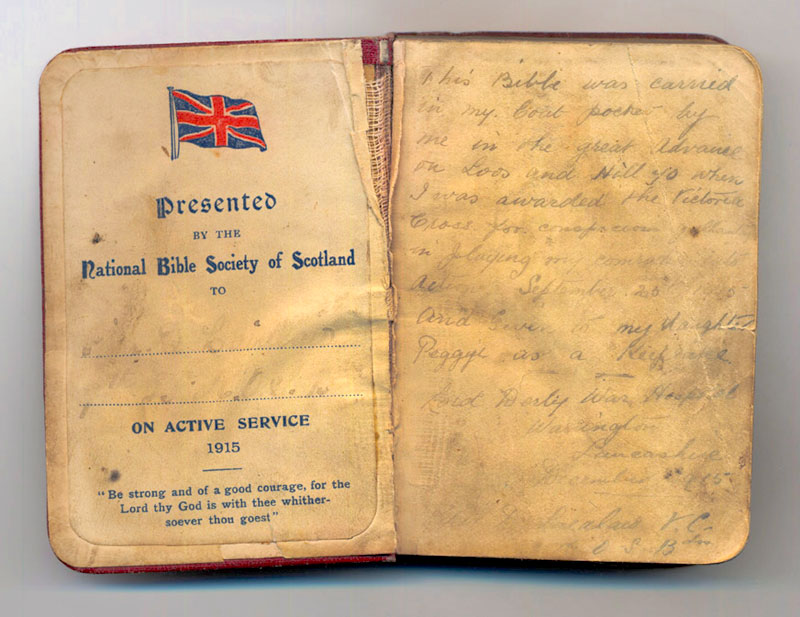 Presented
BY THE
National Bible Society of Scotland
TO
ON ACTIVE SERVICE
1915
"Be strong and of a good courage, for the
Lord thy God is with thee whither-
soever thou goest"
This Bible was carried
in my Coat pocket by
me in the great Advance
on Loos and Hill 70 when
I was awarded the Victoria
Cross for conspicuous
in playing my
September 25th 1915
And Given to my daughter
Peggy as a Keepsake
Lord Derby War Hospital
Warrington
Lancashire
1915
V C
K O S Bdrs